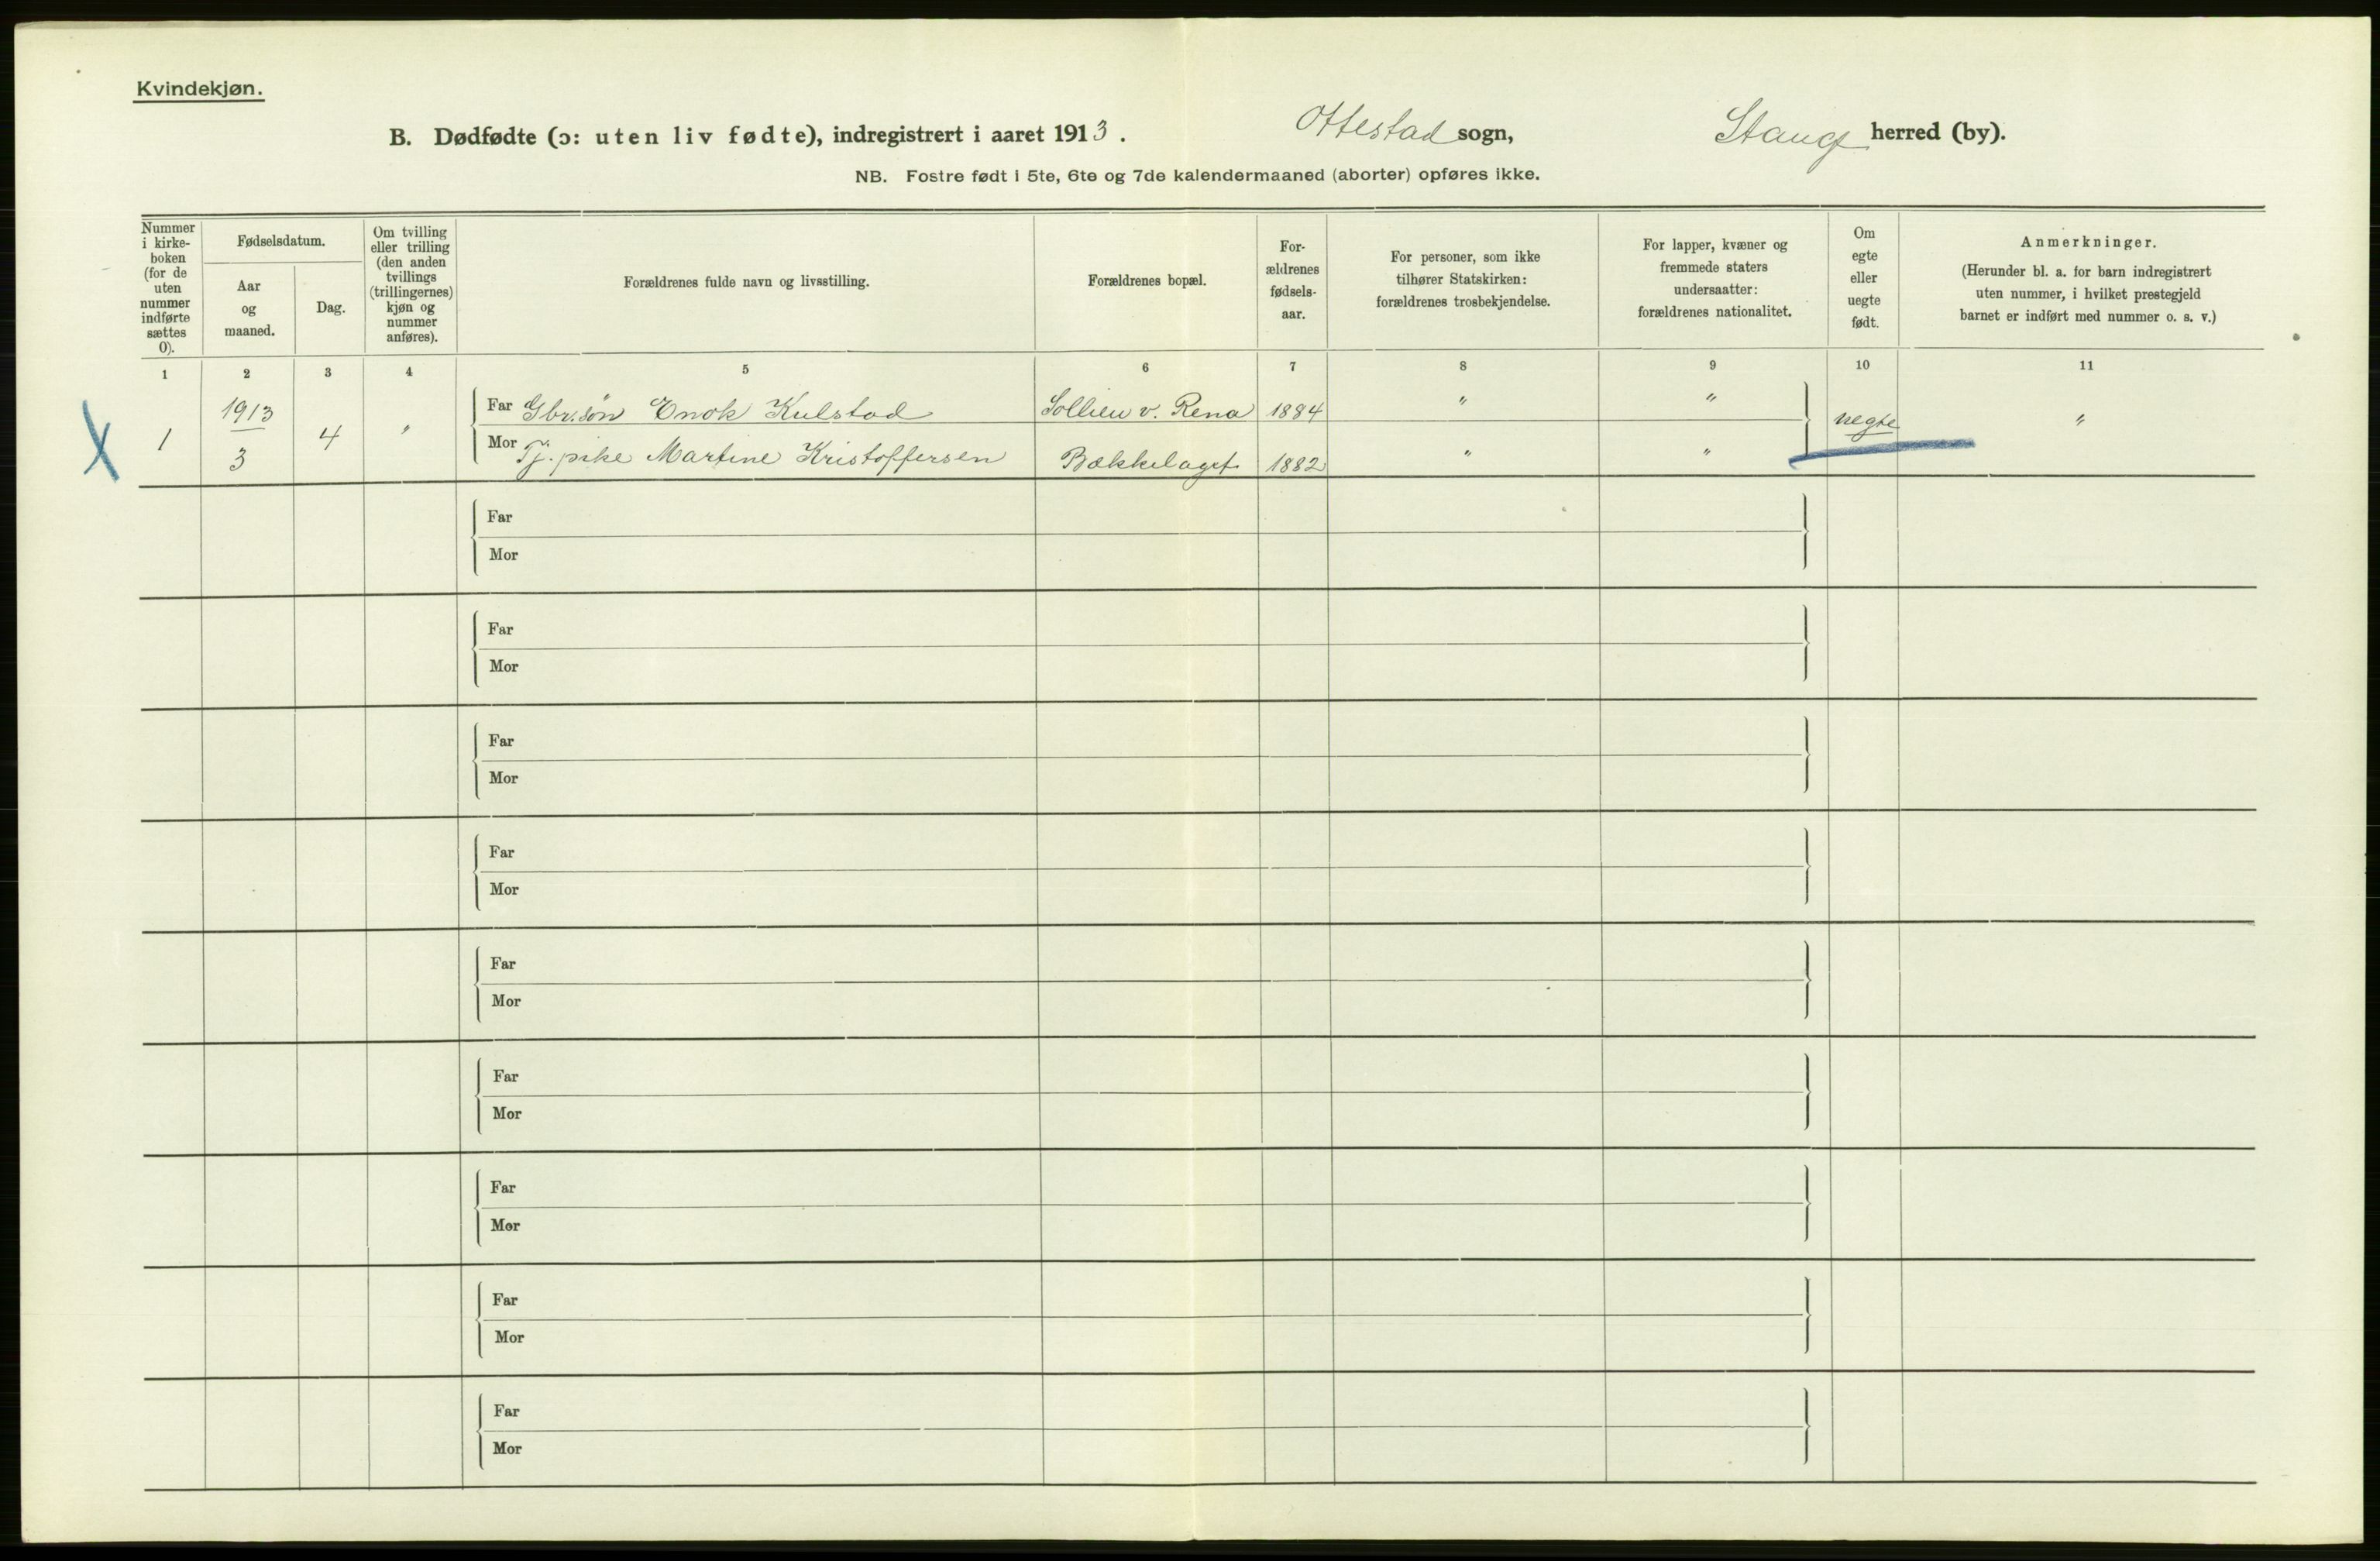 Kvindekjøn.
B. Dødfødte (ɔ: uten liv fødte), indregistrert i aaret 1913. Ottestad sogn, Stange herred (by).
NB. Fostre født i 5te, 6te og 7de kalendermaaned (aborter) opføres ikke.
Nummer
i kirke-
boken
(for de
uten
nummer
indførte
sættes
0).
Fødselsdatum.
Aar
og
maaned.
Dag.
Om tvilling
eller trilling
(den anden
tvillings
(trillingernes)
kjøn og
nummer
anføres).
Forældrenes fulde navn og livsstilling.
Forældrenes bopæl.
For-
ældrenes
fødsels-
aar.
For personer, som ikke
tilhører Statskirken:
forældrenes trosbekjendelse.
For lapper, kvæner og
fremmede staters
undersaatter:
forældrenes nationalitet.
Om
egte
eller
uegte
født.
Anmerkninger.
(Herunder bl. a. for barn indregistrert
uten nummer, i hvilket prestegjeld
barnet er indført med nummer o. s. v.)
1 2 3 4 5 6 7 8 9 10 11
X 1
1913
3
4 "
Far Gbr.søn Enok Kulstad Sollien v. Rena 1884 " "
Mor Tj. pike Martine Kristoffersen Bækkelaget 1882 " "
uegte "
Far
Mor
Far
Mor
Far
Mor
Far
Mor
Far
Mor
Far
Mor
Far
Mor
Far
Mor
Far
Mor